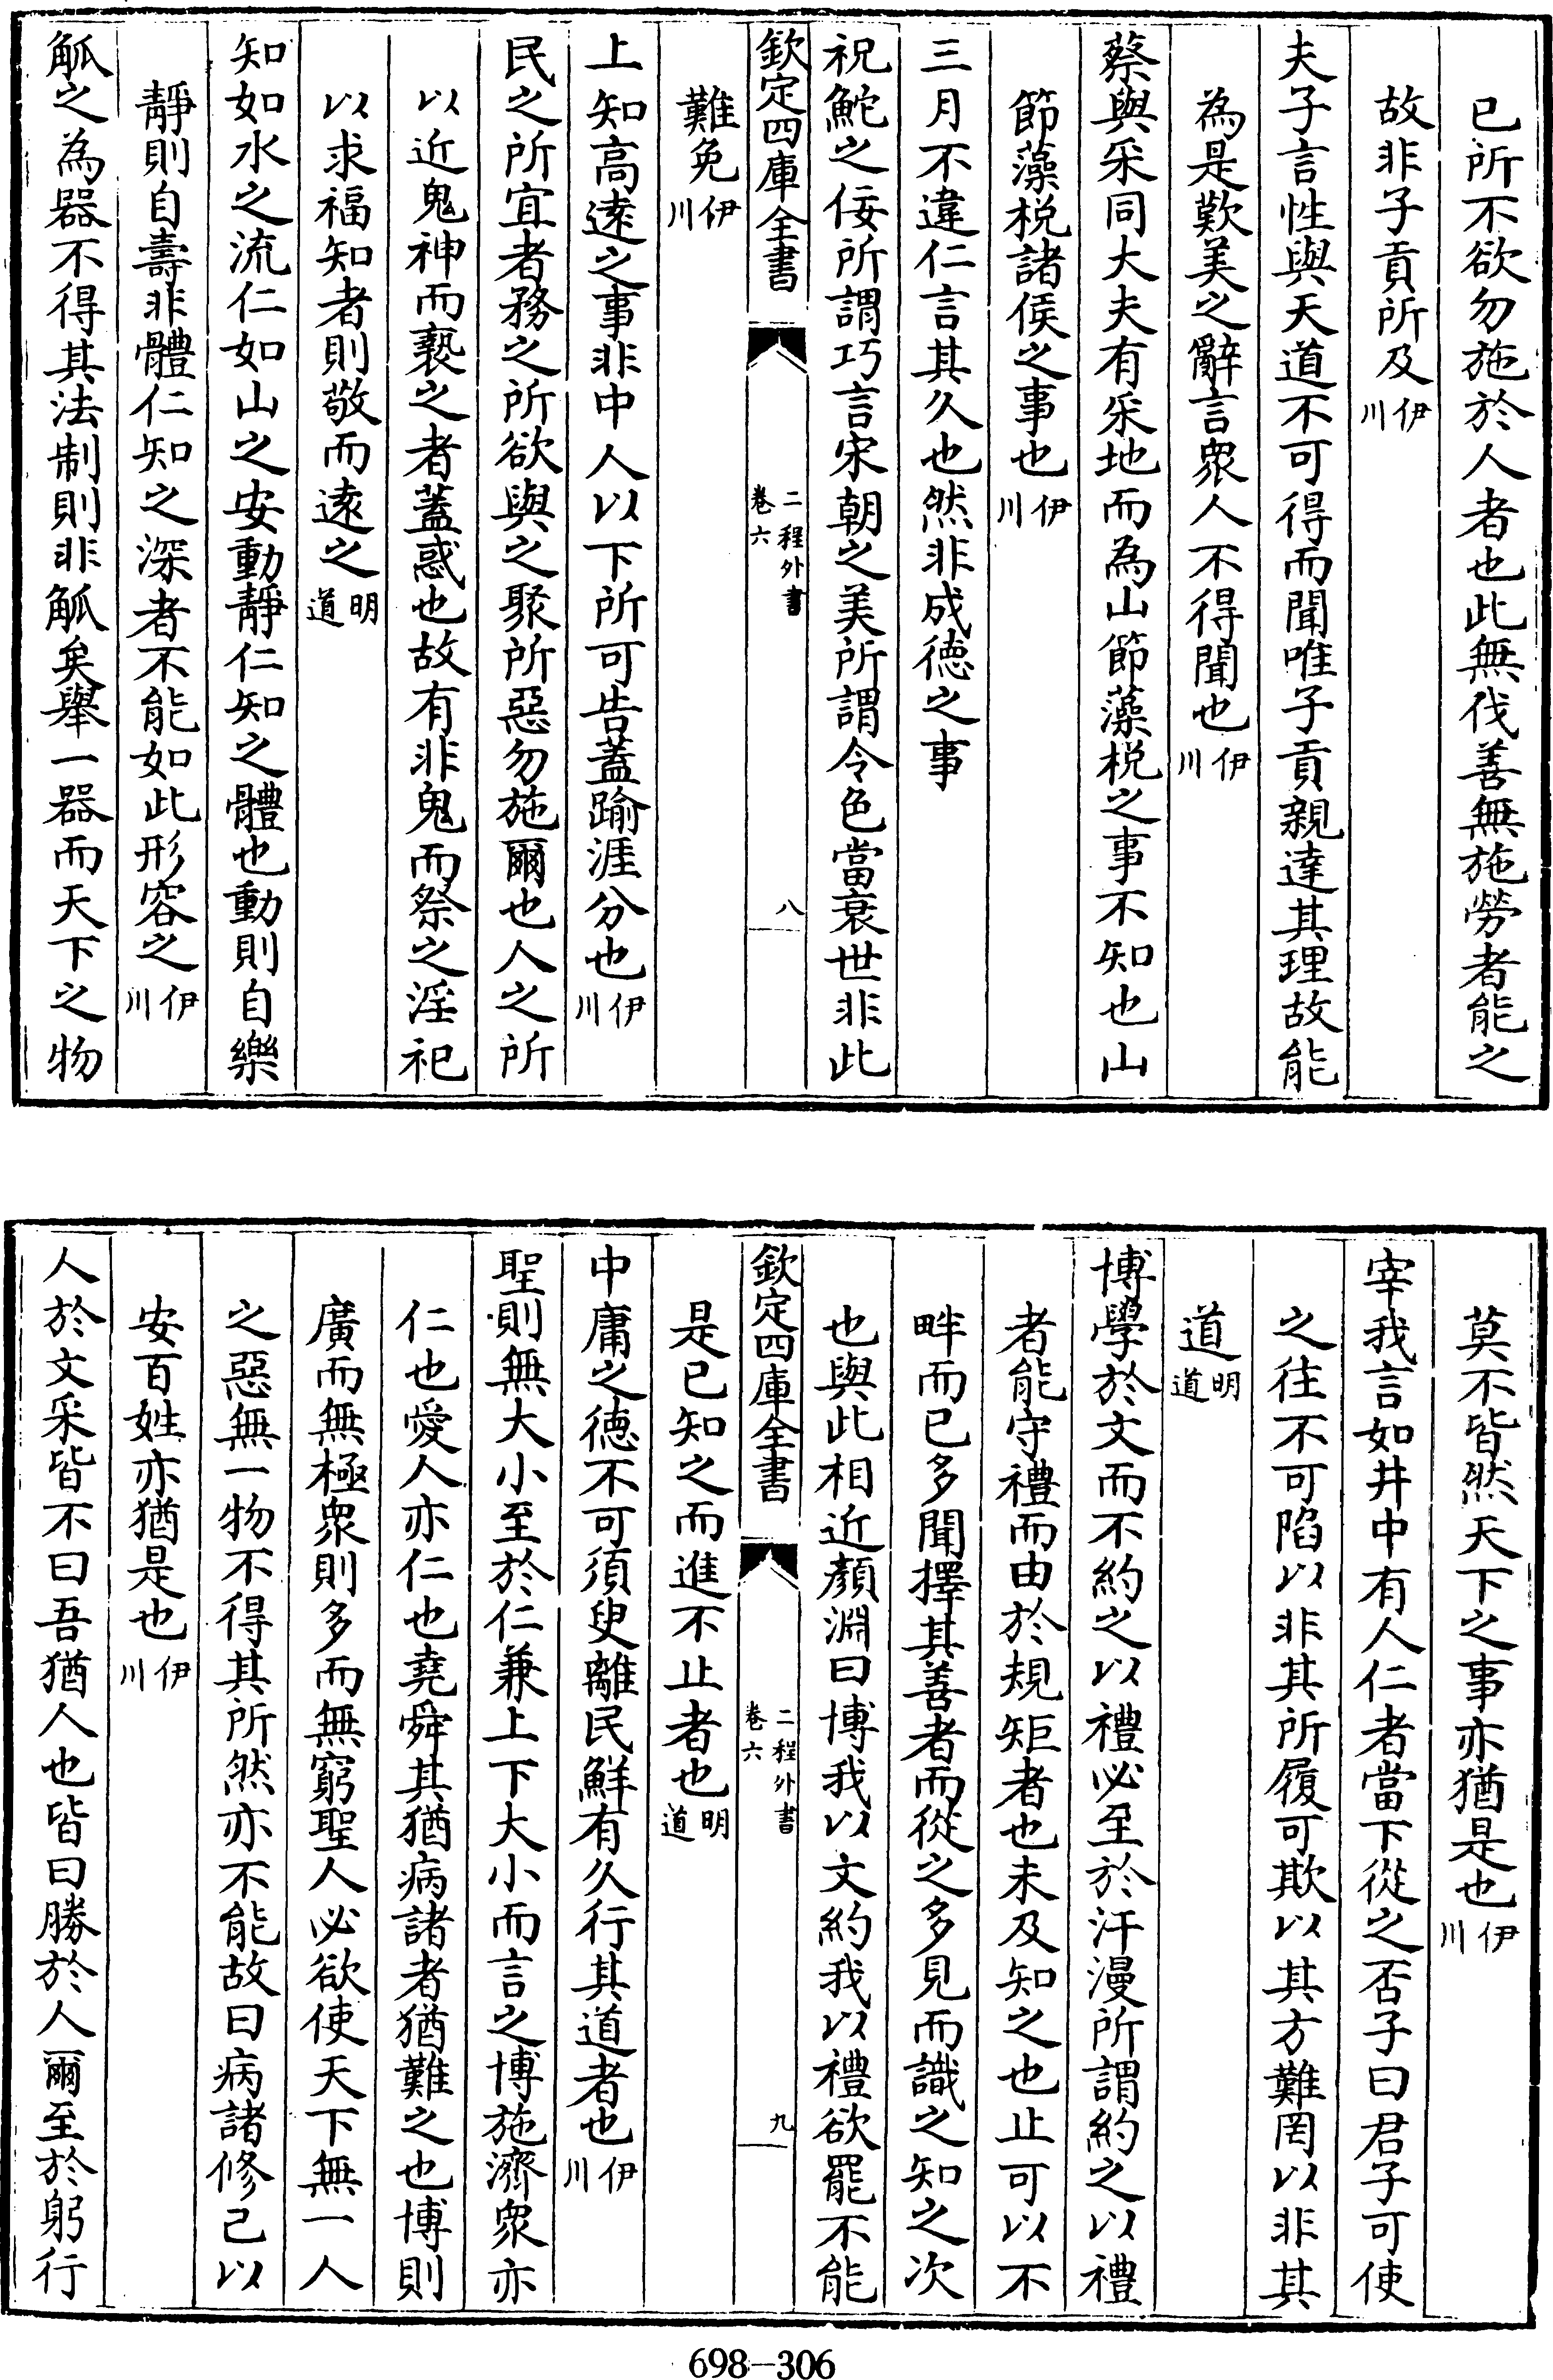 已所不欲勿施於人者也此無伐善無施勞者能之
故非子貢所及伊川
夫子言性與天道不可得而聞唯子貢親達其理故能
為是歎美之辭言衆人不得聞也伊川
蔡與采同大夫有采地而為山節藻梲之事不知也山
節藻梲諸侯之事也伊川
三月不違仁言其久也然非成德之事
祝鮀之佞所謂巧言宋朝之美所謂令色當衰世非此
欽定四庫全書 二程外書卷六 八
難免伊川
上知高遠之事非中人以下所可告蓋踰涯分也伊川
民之所宜者務之所欲與之聚所惡勿施爾也人之所
以近鬼神而褻之者蓋惑也故有非鬼而祭之淫祀
以求福知者則敬而遠之明道
知如水之流仁如山之安動靜仁知之體也動則自樂
靜則自壽非體仁知之深者不能如此形容之伊川
觚之為器不得其法制則非觚矣舉一器而天下之物
莫不皆然天下之事亦猶是也伊川
宰我言如井中有人仁者當下從之否子曰君子可使
之往不可陷以非其所履可欺以其方難罔以非其
道明道
博學於文而不約之以禮必至於汗漫所謂約之以禮
者能守禮而由於規矩者也未及知之也止可以不
畔而已多聞擇其善者而從之多見而識之知之次
也與此相近顏淵曰博我以文約我以禮欲罷不能
欽定四庫全書 二程外書卷六 九
是已知之而進不止者也明道
中庸之德不可須臾離民鮮有久行其道者也伊川
聖則無大小至於仁兼上下大小而言之博施濟衆亦
仁也愛人亦仁也堯舜其猶病諸者猶難之也博則
廣而無極衆則多而無窮聖人必欲使天下無一人
之惡無一物不得其所然亦不能故曰病諸修己以
安百姓亦猶是也伊川
人於文采皆不曰吾猶人也皆曰勝於人爾至於躬行
698-306